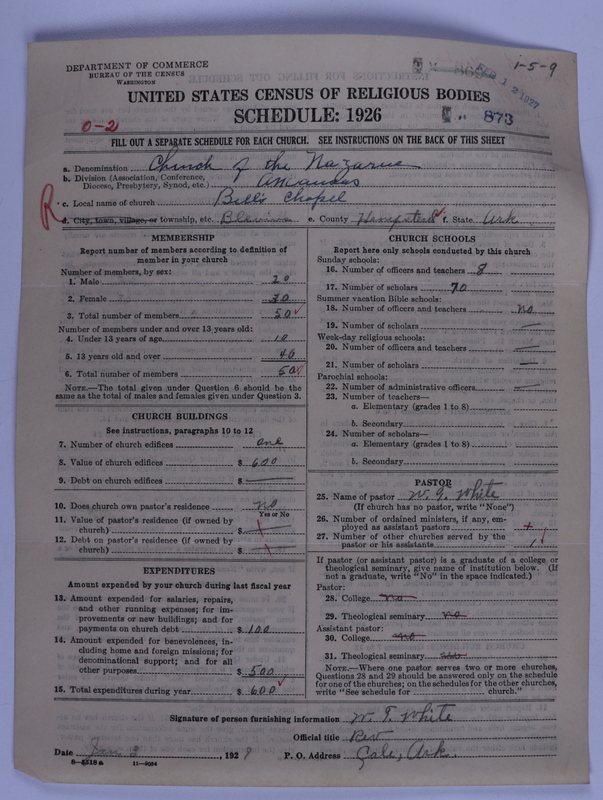 DEPARTMENT OF COMMERCE
BUREAU OF THE CENSUS
WASHINGTON
1-5-9
UNITED STATES CENSUS OF RELIGIOUS BODIES
SCHEDULE: 1926
0-2
873
FILL OUT A SEPARATE SCHEDULE FOR EACH CHURCH. SEE INSTRUCTIONS ON THE BACK OF THIS SHEET
a. Denomination Church of the Nazarene
b. Division (Association, Conference, Diocese, Presbytery, Synod, etc.) Arkansas
R
c. Local name of church Bell's Chapel
d. City, town, village, or township, etc. Blevins e. County Hempstead f. State Ark
MEMBERSHIP
Report number of members according to definition of
member in your church
Number of members, by sex:
1. Male 20
2. Female 30
3. Total number of members 50
Number of members under and over 13 years old:
4. Under 13 years of age 10
5. 13 years old and over 40
6. Total number of members 50
NOTE.—The total given under Question 6 should be the
same as the total of males and females given under Question 3.
CHURCH BUILDINGS
See instructions, paragraphs 10 to 12
7. Number of church edifices one
8. Value of church edifices $ 600
9. Debt on church edifices $ —
10. Does church own pastor's residence no
Yes or No
11. Value of pastor's residence (if owned by
church) $
12. Debt on pastor's residence (if owned by
church) $
EXPENDITURES
Amount expended by your church during last fiscal year
13. Amount expended for salaries, repairs,
and other running expenses; for im-
provements or new buildings; and for
payments on church debt $ 100
14. Amount expended for benevolences, in-
cluding home and foreign missions; for
denominational support; and for all
other purposes $ 500
15. Total expenditures during year $ 600
CHURCH SCHOOLS
Report here only schools conducted by this church
Sunday schools:
16. Number of officers and teachers 8
17. Number of scholars 70
Summer vacation Bible schools:
18. Number of officers and teachers no
19. Number of scholars —
Week-day religious schools:
20. Number of officers and teachers —
21. Number of scholars —
Parochial schools:
22. Number of administrative officers —
23. Number of teachers—
a. Elementary (grades 1 to 8)
b. Secondary
24. Number of scholars—
a. Elementary (grades 1 to 8)
b. Secondary
PASTOR
25. Name of pastor W. T. White
(If church has no pastor, write "None")
26. Number of ordained ministers, if any, em-
ployed as assistant pastors
27. Number of other churches served by the
pastor or his assistants 1
If pastor (or assistant pastor) is a graduate of a college or
theological seminary, give name of institution below. (If
not a graduate, write "No" in the space indicated.)
Pastor:
28. College no
29. Theological seminary no
Assistant pastor:
30. College no
31. Theological seminary no
NOTE.—Where one pastor serves two or more churches,
Questions 28 and 29 should be answered only on the schedule
for one of the churches; on the schedules for the other churches,
write "See schedule for church."
Signature of person furnishing information W. T. White
Official title Rev
Date Jan 2, 192 P. O. Address Gale, Ark.
8-5518a 11-9034